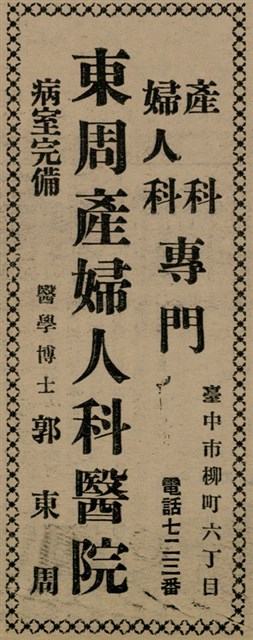 産科
婦人科
專門
臺中市柳町六丁目
電話七二三番
東周產婦人科醫院
病室完備
醫學博士 郭東周